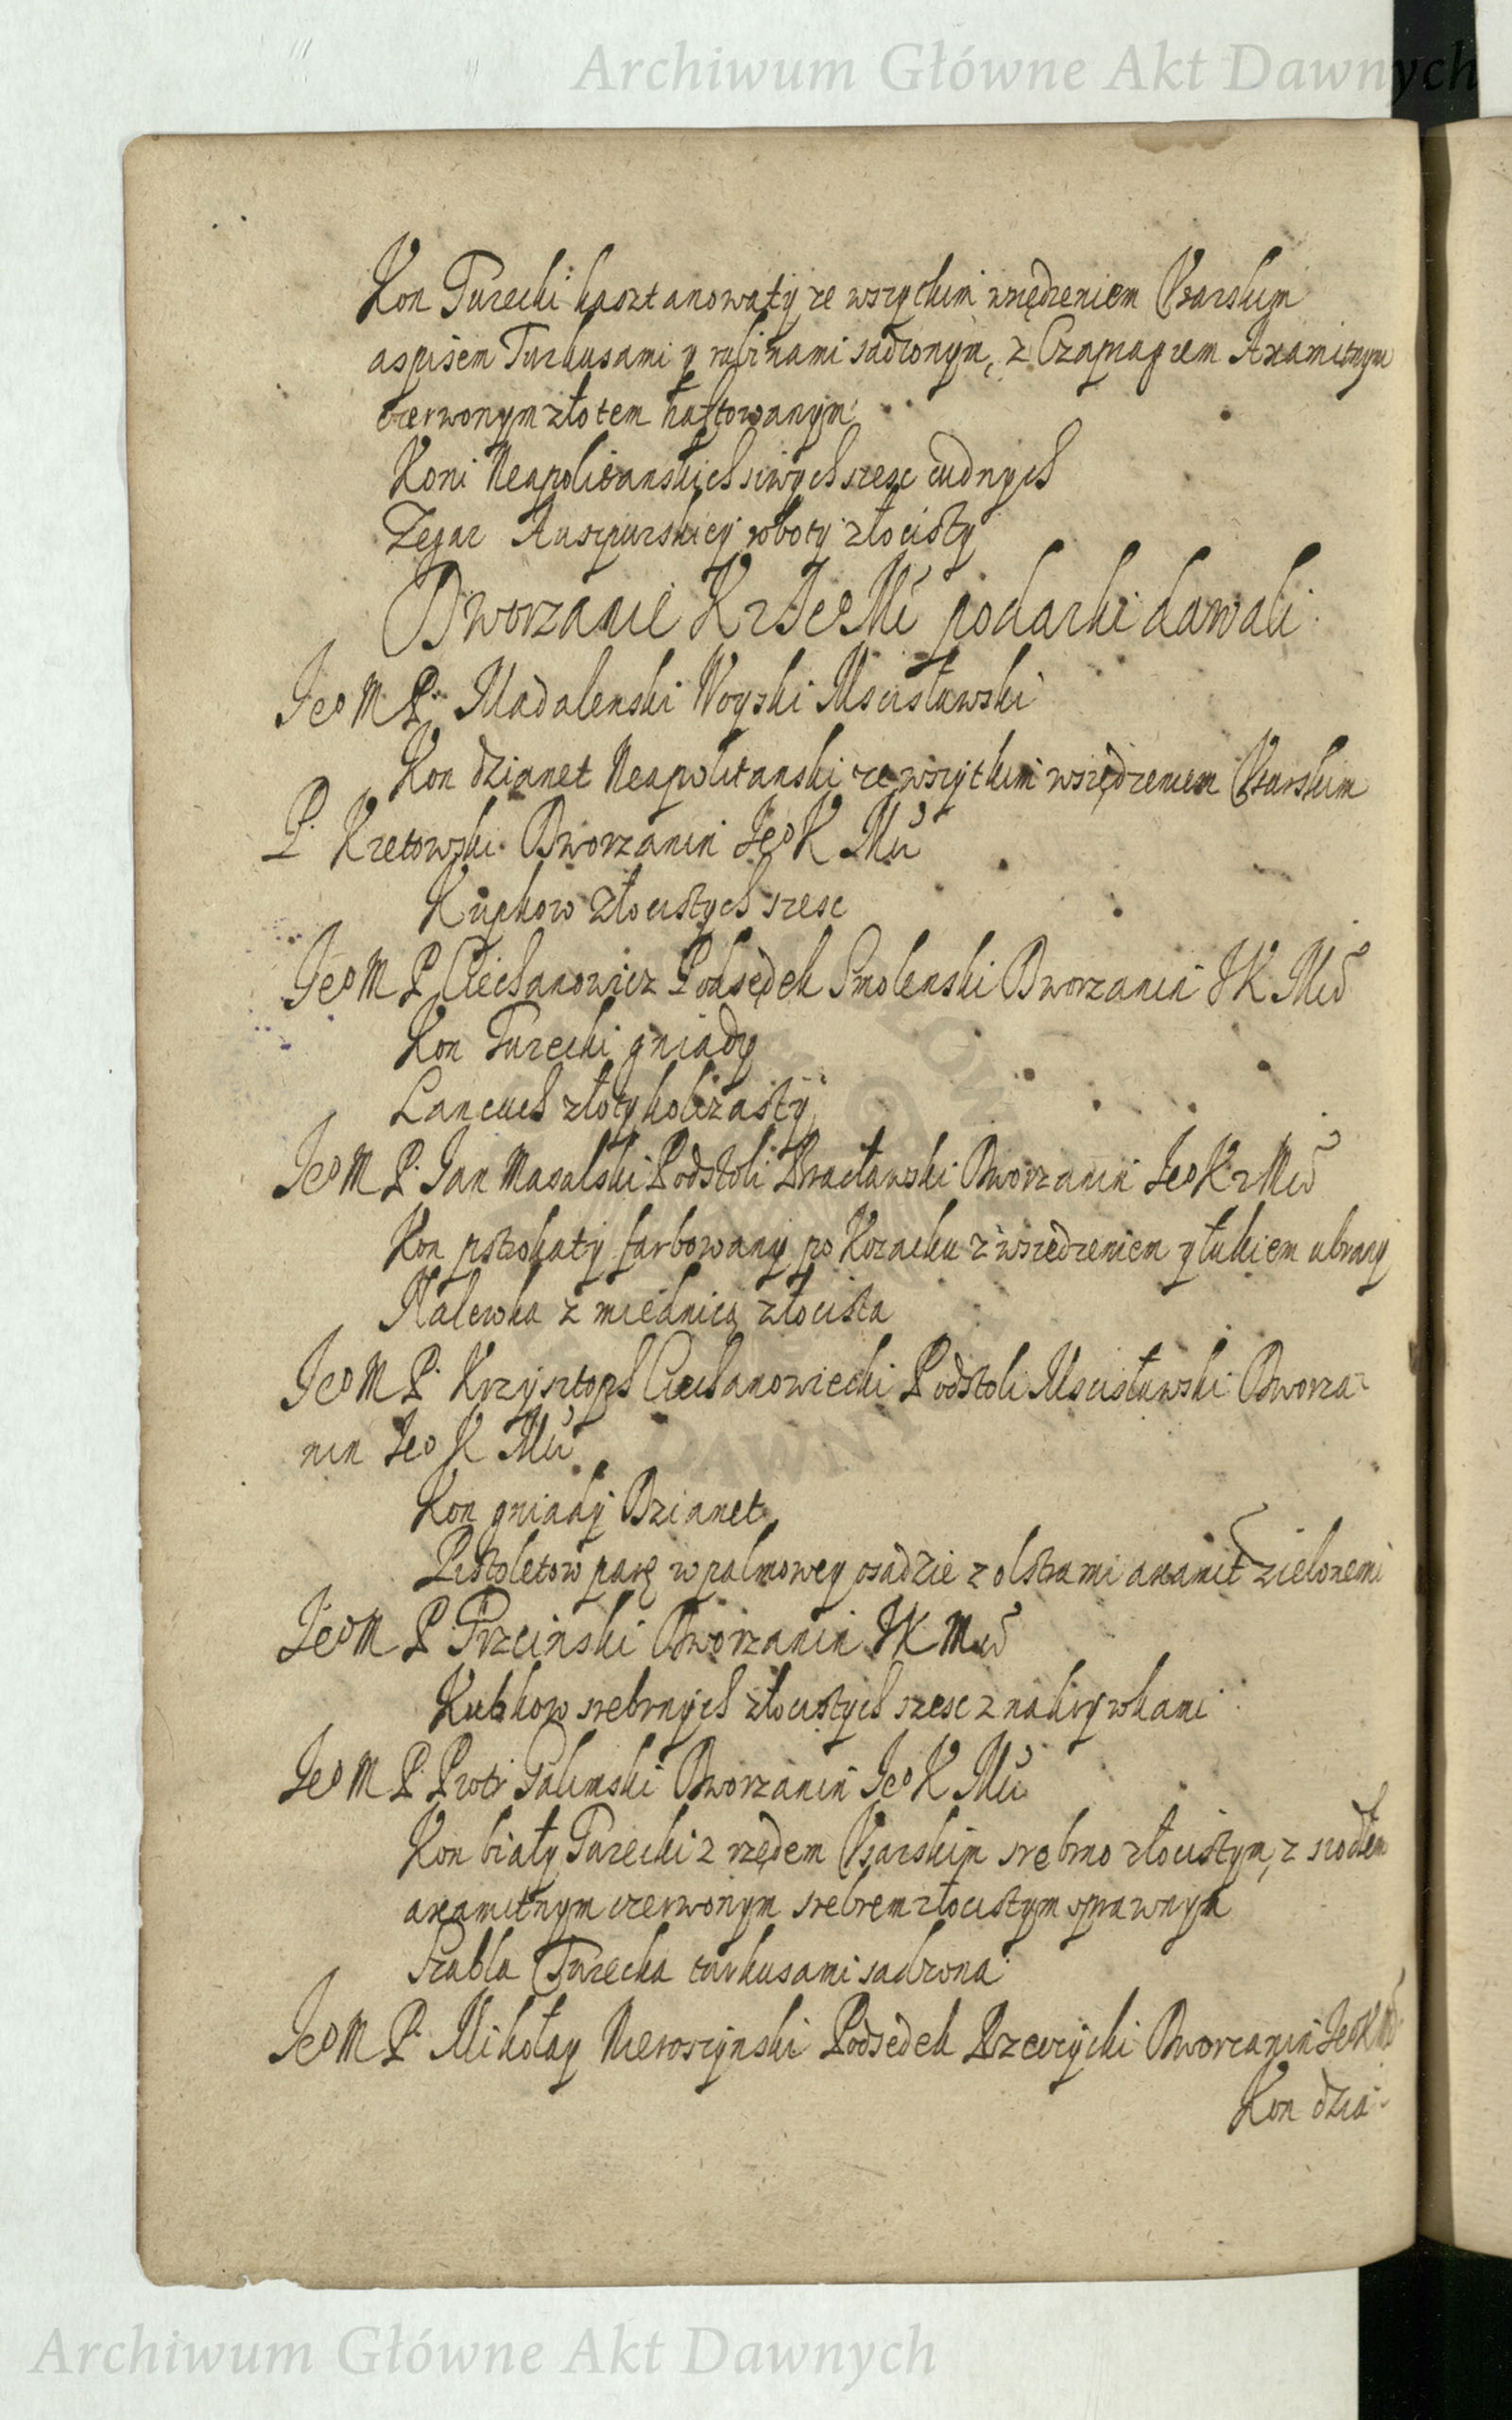 Archiwum Główne Akt Dawnych
Kon Turecki kasztanowaty ze wszytkim wsiędzeniem Usarskim
aspisem Turkusami y rubinami sadzonym, z Czapragiem Axamitnym
czerwonym złotem haftowanym
Koni Neapolitanskich siwych szesc cudnych
Zegar Auszpurskiey roboty złocisty
Dworzanie K Je Mci podarki dawali
Jeo M P. Madalenski Woyski Mscisławski
Kon dzianet Neapolitanski ze wszytkim wsiędzeniem Usarskim
P. Kretowski Dworzanin Jeo K Mci
Kupkow złocistych szesc
Jeo M P Ciechanowicz Podsędek Smolenski Dworzanin JK Mci
Kon Turecki gniady
Lancuch złoty kolczasty
Jeo M P. Jan Masalski Podstoli Bracławski Dworzanin Jeo K Mci
Kon pstrokaty farbowany po Kozacku z wsiedzeniem y łukiem ubrany
Nalewka z miednicą złocista
Jeo M P. Krzysztoph Ciechanowiecki Podstoli Mscisławski Dworza-
nin Jeo K Mci
Kon gniady Dzianet
Pistoletow parę w palmowey osadzie z olstrami axamit zielonemi
Jeo M P Trzcinski Dworzanin JK Mci
Kubkow srebrnych złocistych szesc z nakrywkami
Jeo M P Piotr Galimski Dworzanin Jeo K Mci
Kon biały Turecki z rzędem Usarskim srebrno złocistym, z siodłem
axamitnym czerwonym srebrem złocistym oprawnym
Szabla Turecka turkusami sadzona
Jeo M P. Mikołay Nieroszynski Podsedek Rzeczycki Dworzanin Jeo K M
Kon dzia-
Archiwum Główne Akt Dawnych